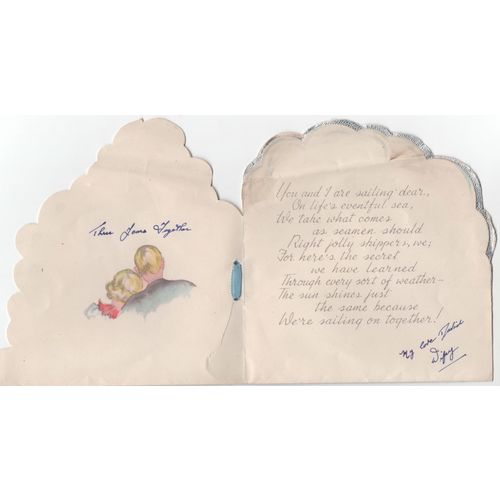 Three Years Together
You and I are sailing dear,
On life's eventful sea,
We take what comes
as seamen should
Right jolly shippers, we;
For here's the secret
we have learned
Through every sort of weather—
The sun shines just
the same because
We're sailing on together!
My love
Wifey